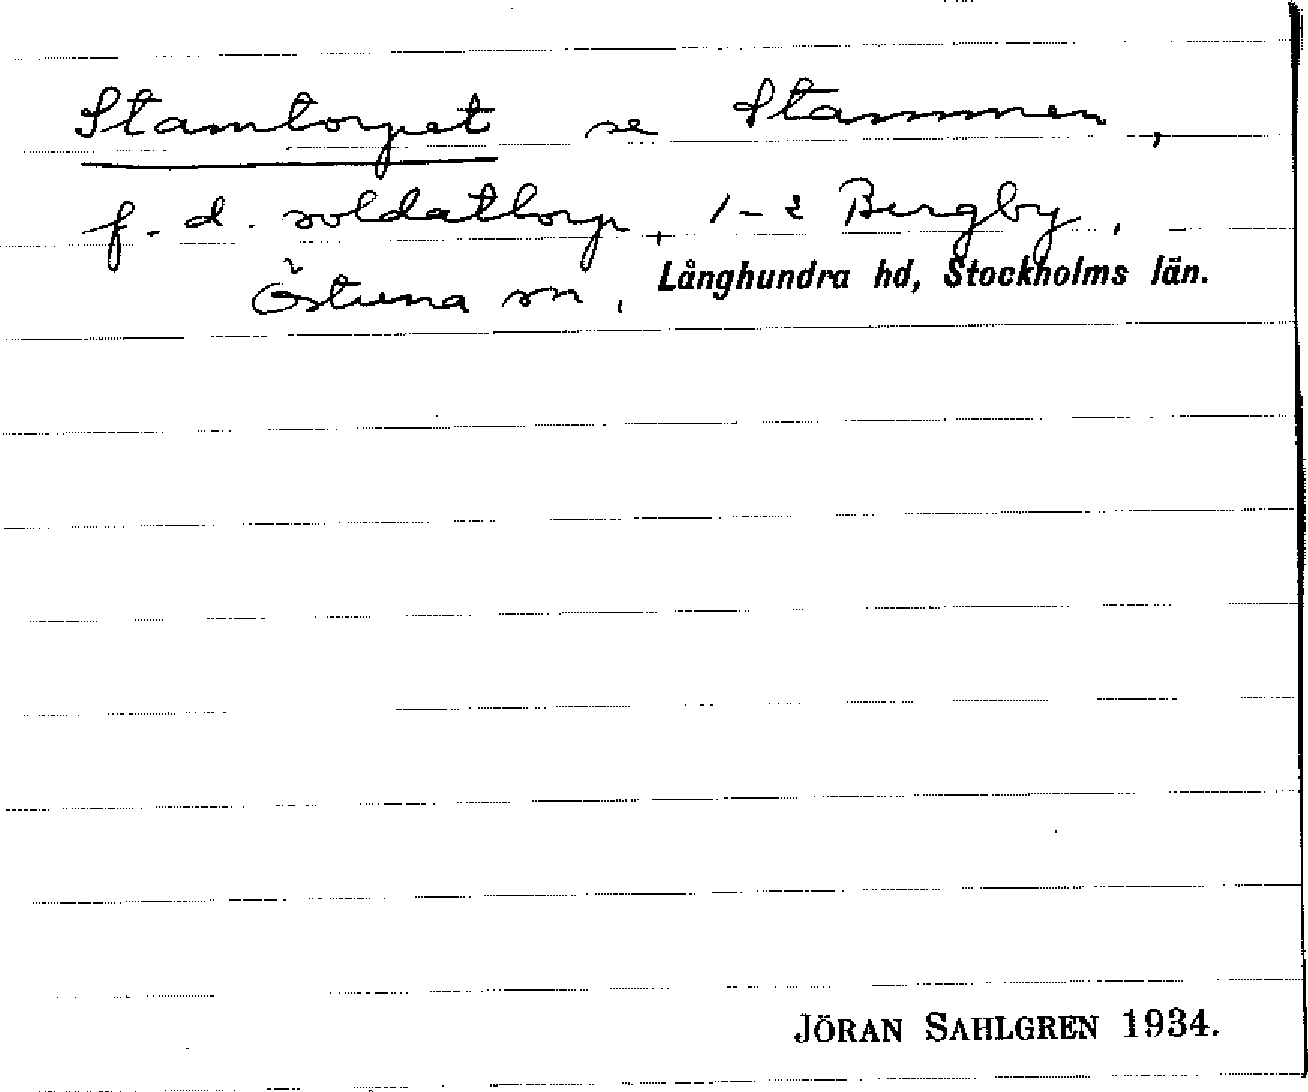 Stamtorpet se Stammen,
f.d. soldattorp, 1-2 Bergby,
Östuna sn, Långhundra hd, Stockholms län.
JÖRAN SAHLGREN 1934.